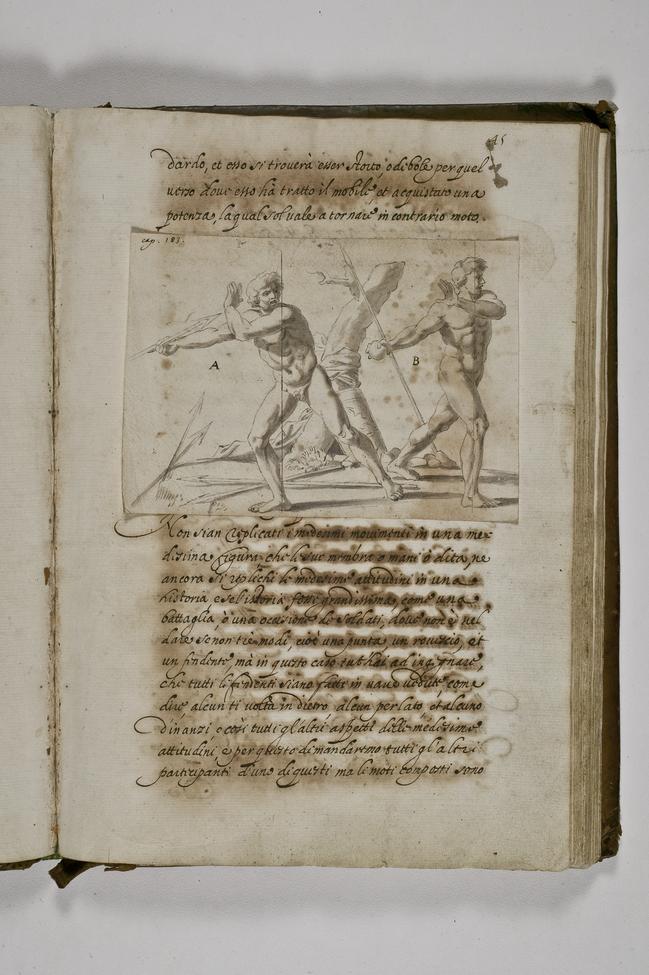 45
dardo, et esso si trouerà esser storto, o debole per quel
uerso doue esso hà tratto il mobile, et acquistato una
potenza, la qual sol uale a tornare in contrario moto.
cap. 183.
A
B
Non sian replicati i medesimi mouimenti in una me=
desima figura che le sue membra o mani ò dita, ne
ancora si replichi le medesime attitudini in una
historia e se l'istoria fosse grandissima, come una
battaglia, ò una occisione de soldati, doue non è nel
dare se non tre modi, cioè una punta, un rouescio, et
un fendente, mà in questo caso tu t'hai ad ingegnare,
che tutti li fendenti siano fatti in uarie uedute, come
dire alcun ti uolta in dietro alcun per lato, et alcuno
dinanzi e così tutti gl'altri aspetti delle medesime
attitudini e per questo dimandaremo tutti gl'altri
participanti d'uno di questi ma le moti composti sono